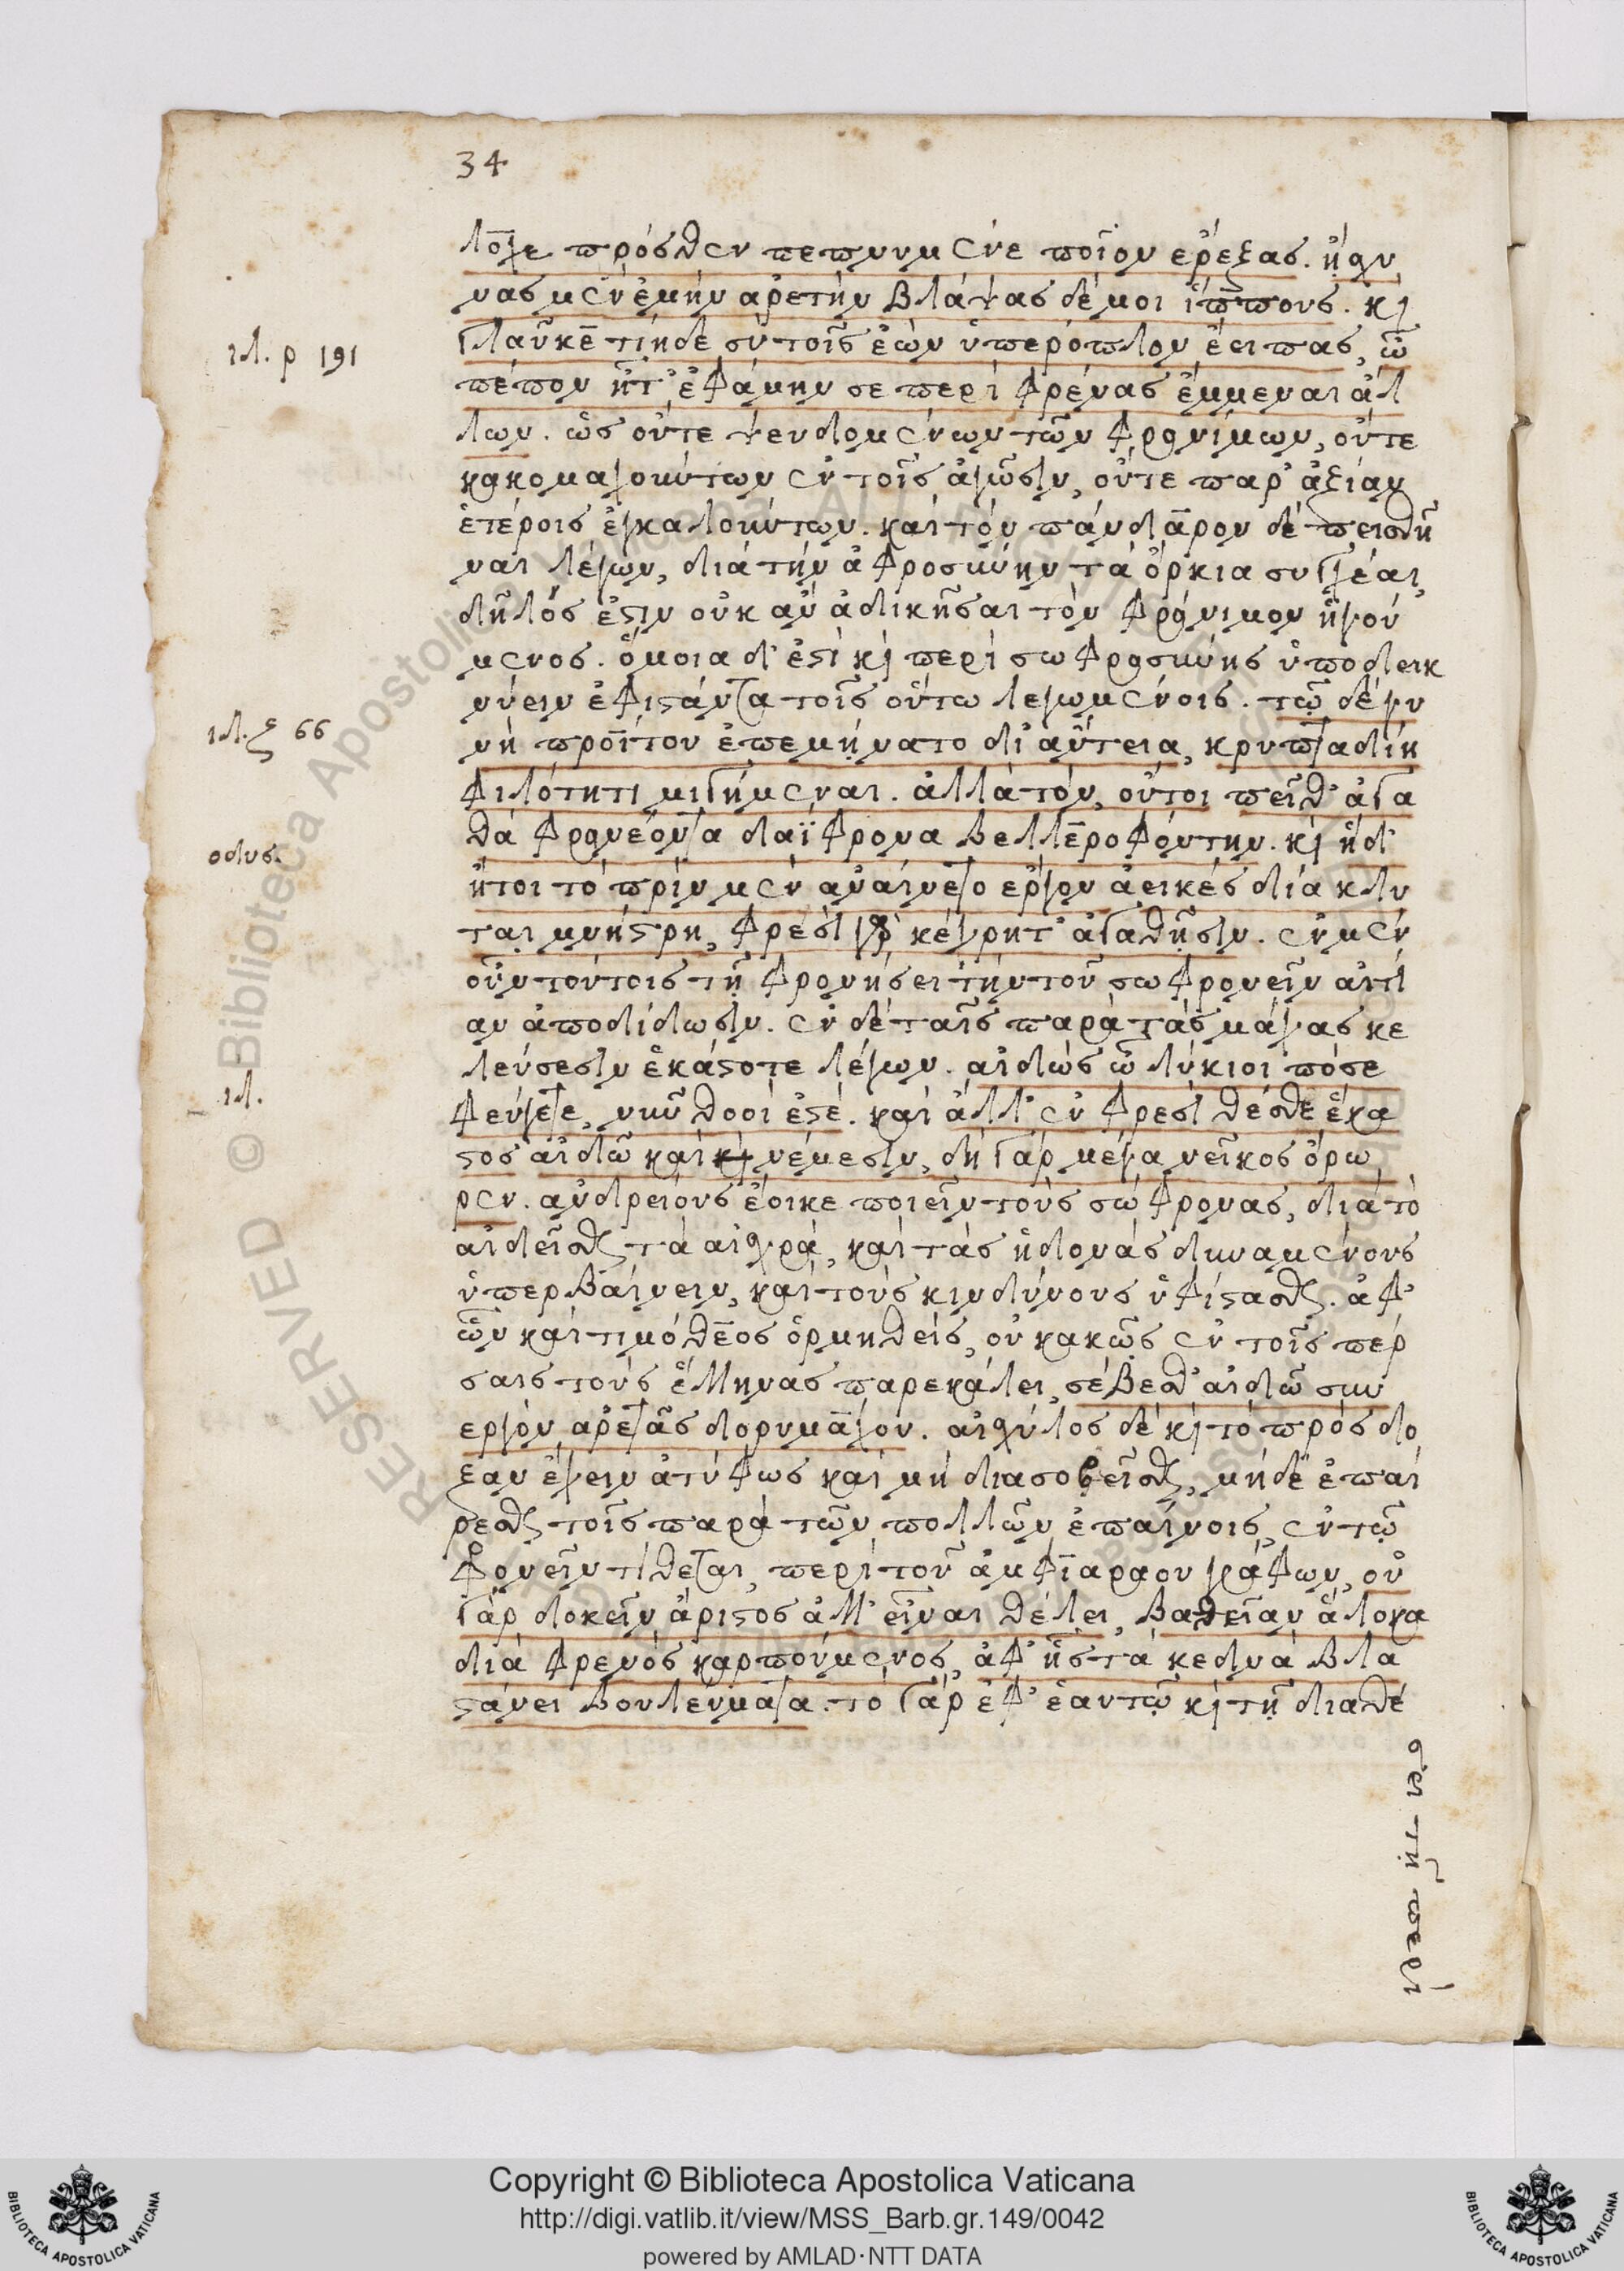 34
λοχε πρόσθεν πεπνυμένε ποῖον ἔρεξας. ᾔσχυ
νας μὲν ἐμὴν ἀρετὴν βλάψας δέ μοι ἵππους. κὶ
ιλ. ρ 191
γλαῦκε τίηδε σὺ τοῖς ἐὼν ὑπέροπλον ἔειπας, ὦ
πέπον ἦτ' ἐφάμην σε περὶ φρένας ἔμμεναι ἀλ
λων. ὡς οὔτε ψευδομένων τῶν φρονίμων, οὔτε
κακομαχούντων ἐν τοῖς ἀγῶσιν, οὔτε παρ' ἀξίαν
ἑτέροις ἐγκαλούντων. καὶ τὸν πάνδαρον δὲ πεισθῆ
ναι λέγων, διὰ τὴν ἀφροσύνην τὰ ὅρκια συγχέαι,
δῆλός ἐστιν οὐκ ἂν ἀδικῆσαι τὸν φρόνιμον ἡγού
μενος. ὅμοια δ' ἐστὶ κὶ περὶ σωφροσύνης ὑποδεικ
νύειν ἐφιστάντα τοῖς οὕτω λεγωμένοις. τῷ δὲ γυ
ιλ. ζ 66
νὴ προῖτου ἐπεμήνατο δῖ' αὔτεια, κρυπταδίη
φιλότητι μιγήμεναι. ἀλλὰ τὸν, οὔτοι πεῖθ' ἀγα
θὰ φρονέοντα δαΐφρονα βελλεροφόντην. κὶ ἡδ'
οδυσ.
ἤτοι τὸ πρὶν μὲν ἀναίνετο ἔργον ἀεικές δῖα κλυ
ταιμνήστρη, φρεσὶ γὰρ κέχρητ' ἀγαθῇσιν. ἐν μὲν
οὖν τούτοις τῇ φρονήσει τὴν τοῦ σωφρονεῖν αἰτί
αν ἀποδίδωσιν. ἐν δὲ ταῖς παρὰ τὰς μάχας κε
λεύσεσιν ἑκάστοτε λέγων. αἰδὼς ὦ λύκιοι πόσε
ιλ.
φεύγετε, νῦν θοοὶ ἐστέ. καὶ ἀλλ' ἐν φρεσὶ θέσθε ἕκα
στος αἰδῶ καὶ κὶ νέμεσιν, δὴ γὰρ μέγα νεῖκος ὄρω
ρεν. ἀνδρείους ἔοικε ποιεῖν τοὺς σώφρονας, διὰ τὸ
αἰδεῖσθαι τὰ αἰσχρά, καὶ τὰς ἡδονὰς δυναμένους
ὑπερβαίνειν, καὶ τοὺς κινδύνους ὑφίστασθαι. ἀφ'
ὧν καὶ τιμόθεος ὁρμηθεὶς, οὐ κακῶς ἐν τοῖς πέρ
σαις τοὺς ἕλληνας παρεκάλει, σέβεσθ' αἰδῶ συν
εργὸν ἀρετᾶς δορυμάχου. αἰσχύλος δὲ κὶ τὸ πρὸς δό
ξαν ἔχειν ἀτύφως καὶ μὴ διασοβεῖσθαι, μηδὲ ἐπαί
ρεσθαι τοῖς παρὰ τῶν πολλῶν ἐπαίνοις, ἐν τῷ
φρονεῖν τίθεται, περὶ τοῦ ἀμφιαράου γράφων, οὐ
γὰρ δοκεῖν ἄριστος ἀλλ' εἶναι θέλει, βαθεῖαν ἄλοκα
διὰ φρενὸς καρπούμενος, ἀφ' ἧς τὰ κεδνὰ βλα
στάνει βουλεύματα. τὸ γὰρ ἐφ' ἑαυτῷ κὶ τῇ διαθέ
σει τῇ περὶ
RESERVED © Biblioteca Apostolica Vaticana
Copyright © Biblioteca Apostolica Vaticana
http://digi.vatlib.it/view/MSS_Barb.gr.149/0042
powered by AMLAD·NTT DATA
BIBLIOTECA APOSTOLICA VATICANA
BIBLIOTECA APOSTOLICA VATICANA